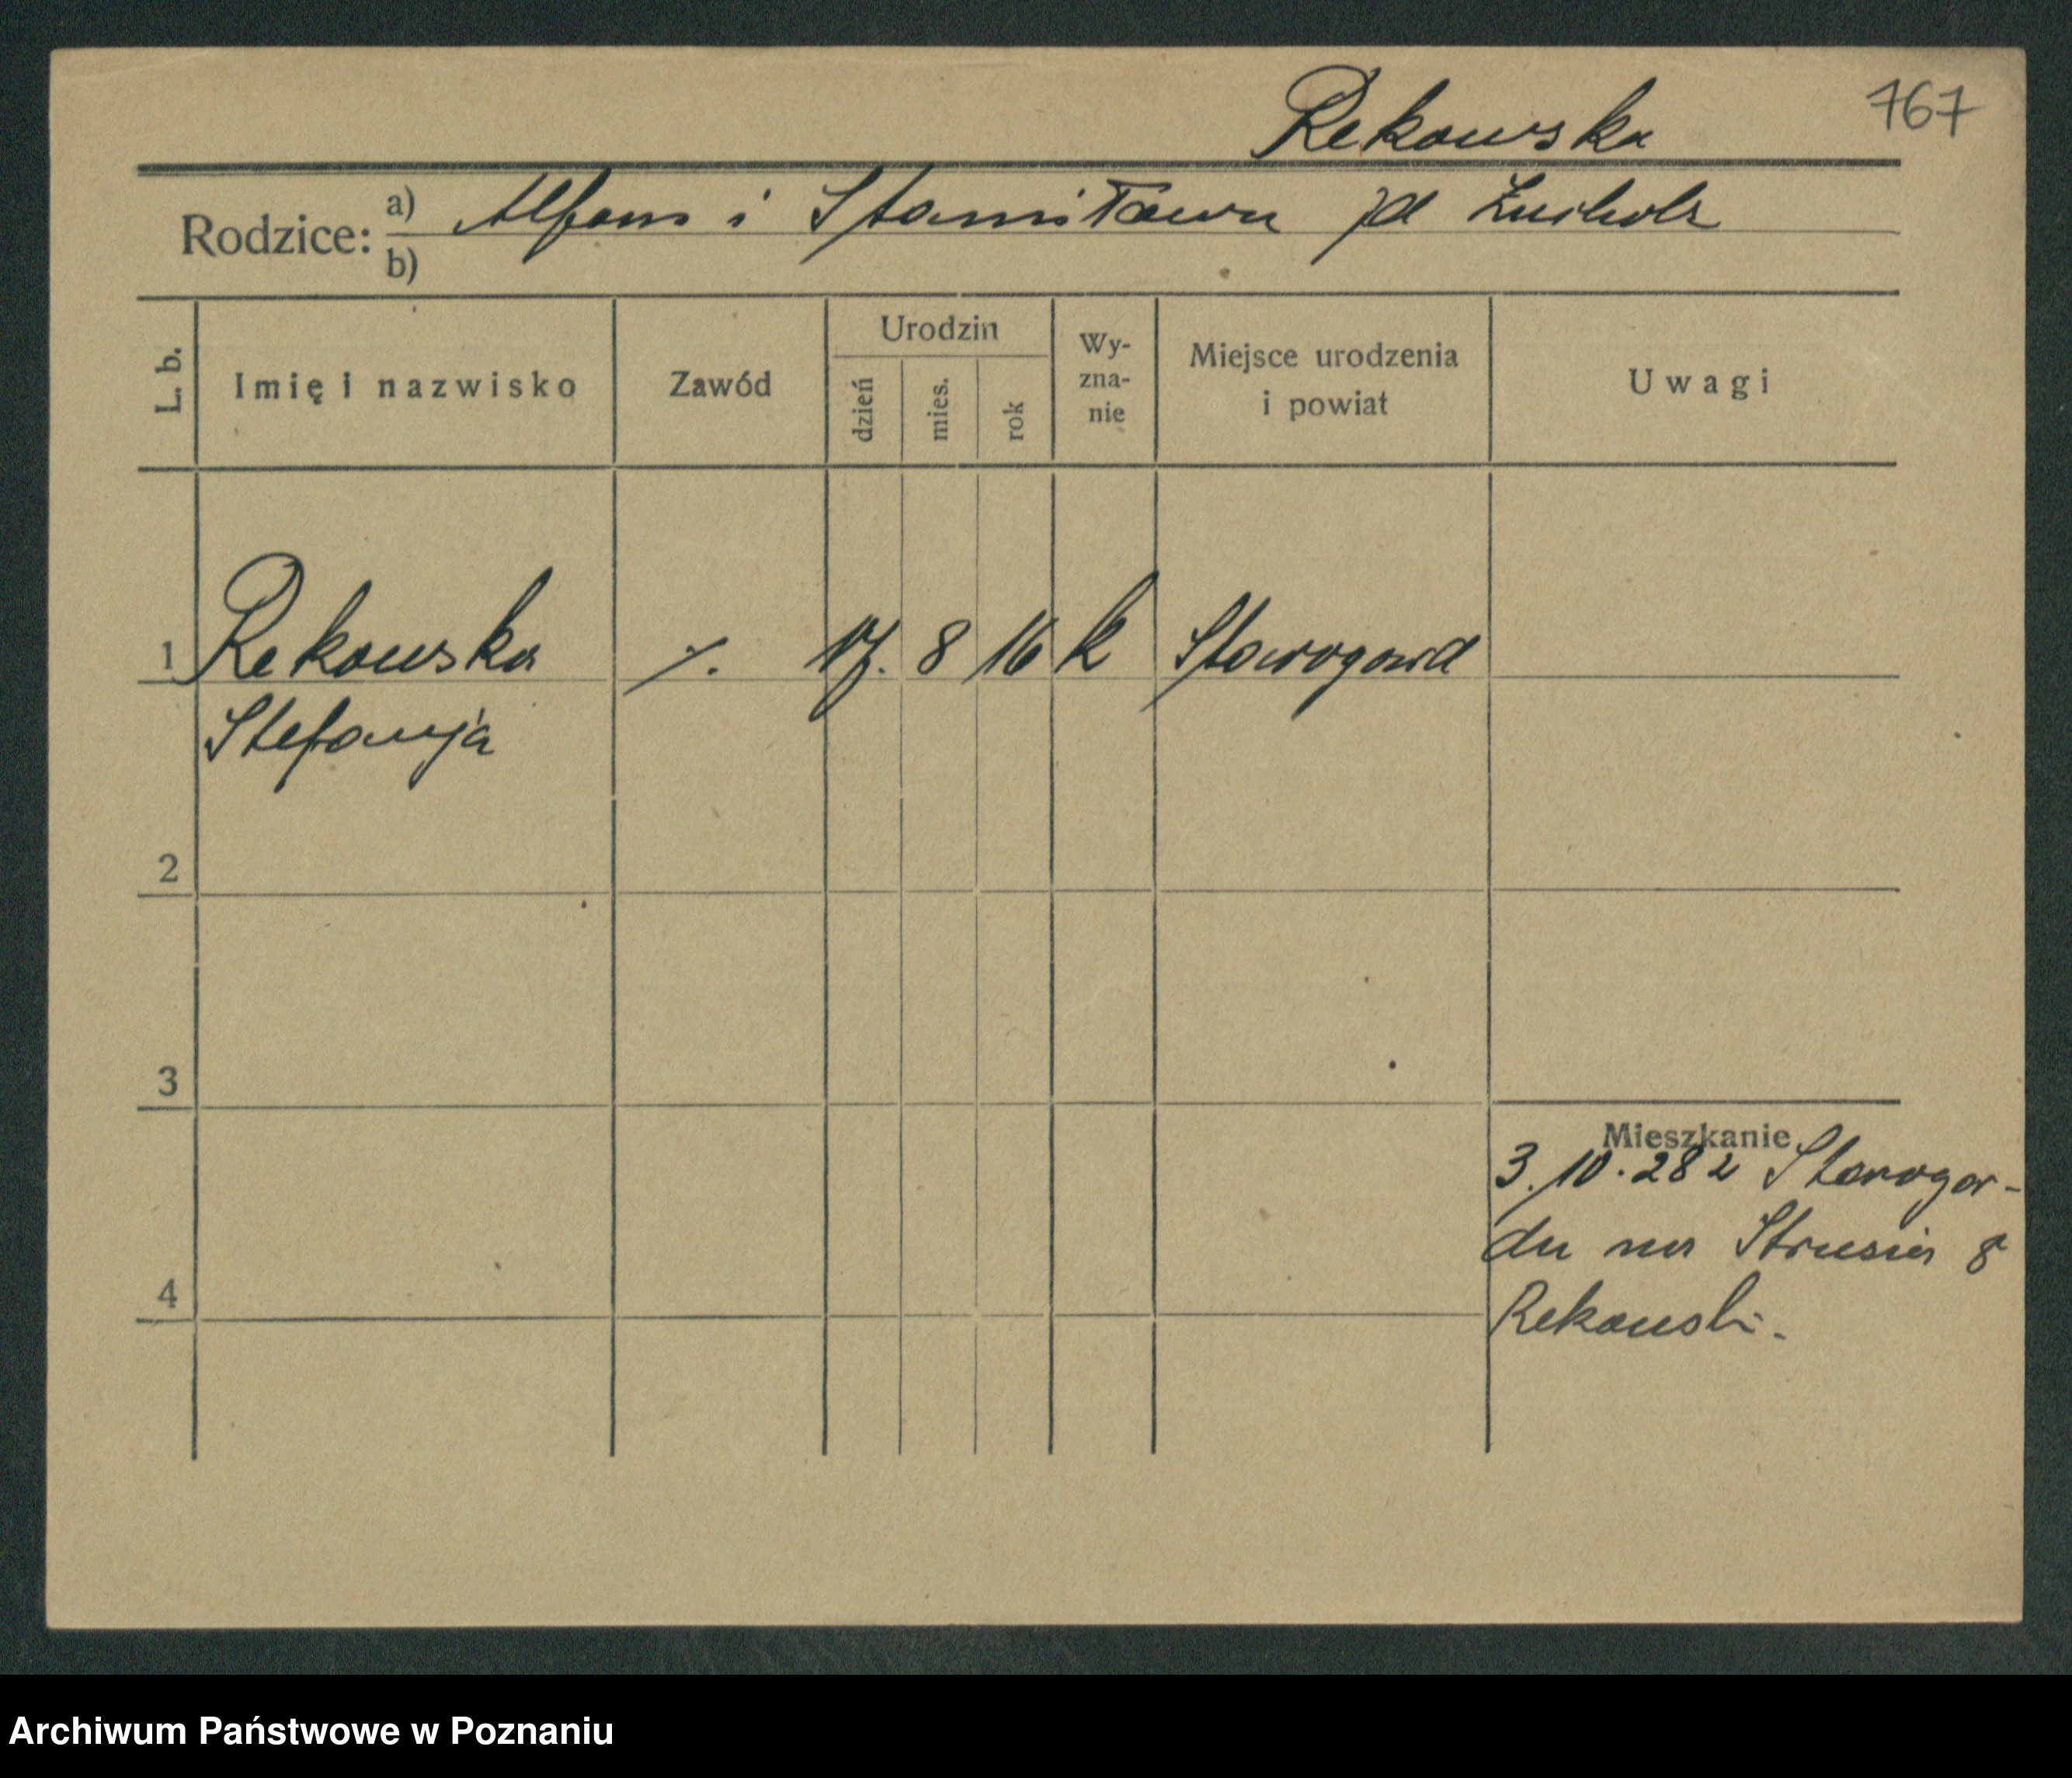 Rekowska 767
Rodzice: a) Alfons i Stanisława zd
b)
L. b. Imię i nazwisko Zawód Urodzin dzień mies. rok Wy-zna-nie Miejsce urodzenia i powiat Uwagi
1 Rekowska ./. 17. 8 16 k Starogard
Stefanja
2
3
Mieszkanie
3.10.28 z Starogar-
du na Strusia 8
4
Rekowski.
Archiwum Państwowe w Poznaniu